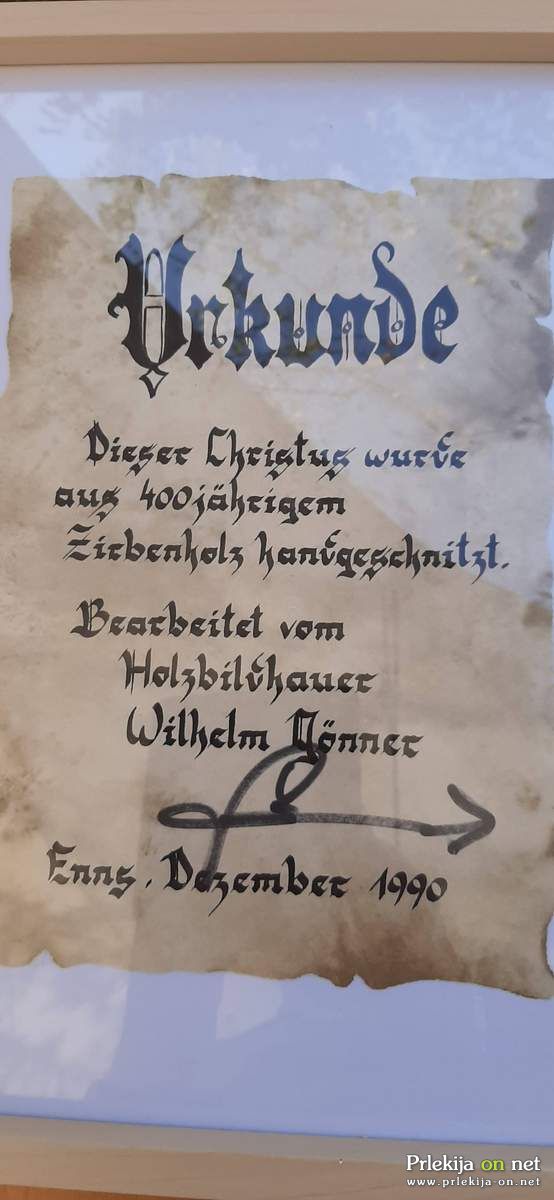 Urkunde
Dieser Christus wurde
aus 400jährigem
Zirbenholz handgeschnitzt.
Bearbeitet vom
Holzbildhauer
Wilhelm
Enns, Dezember 1990
Prlekija on net
www.prlekija-on.net